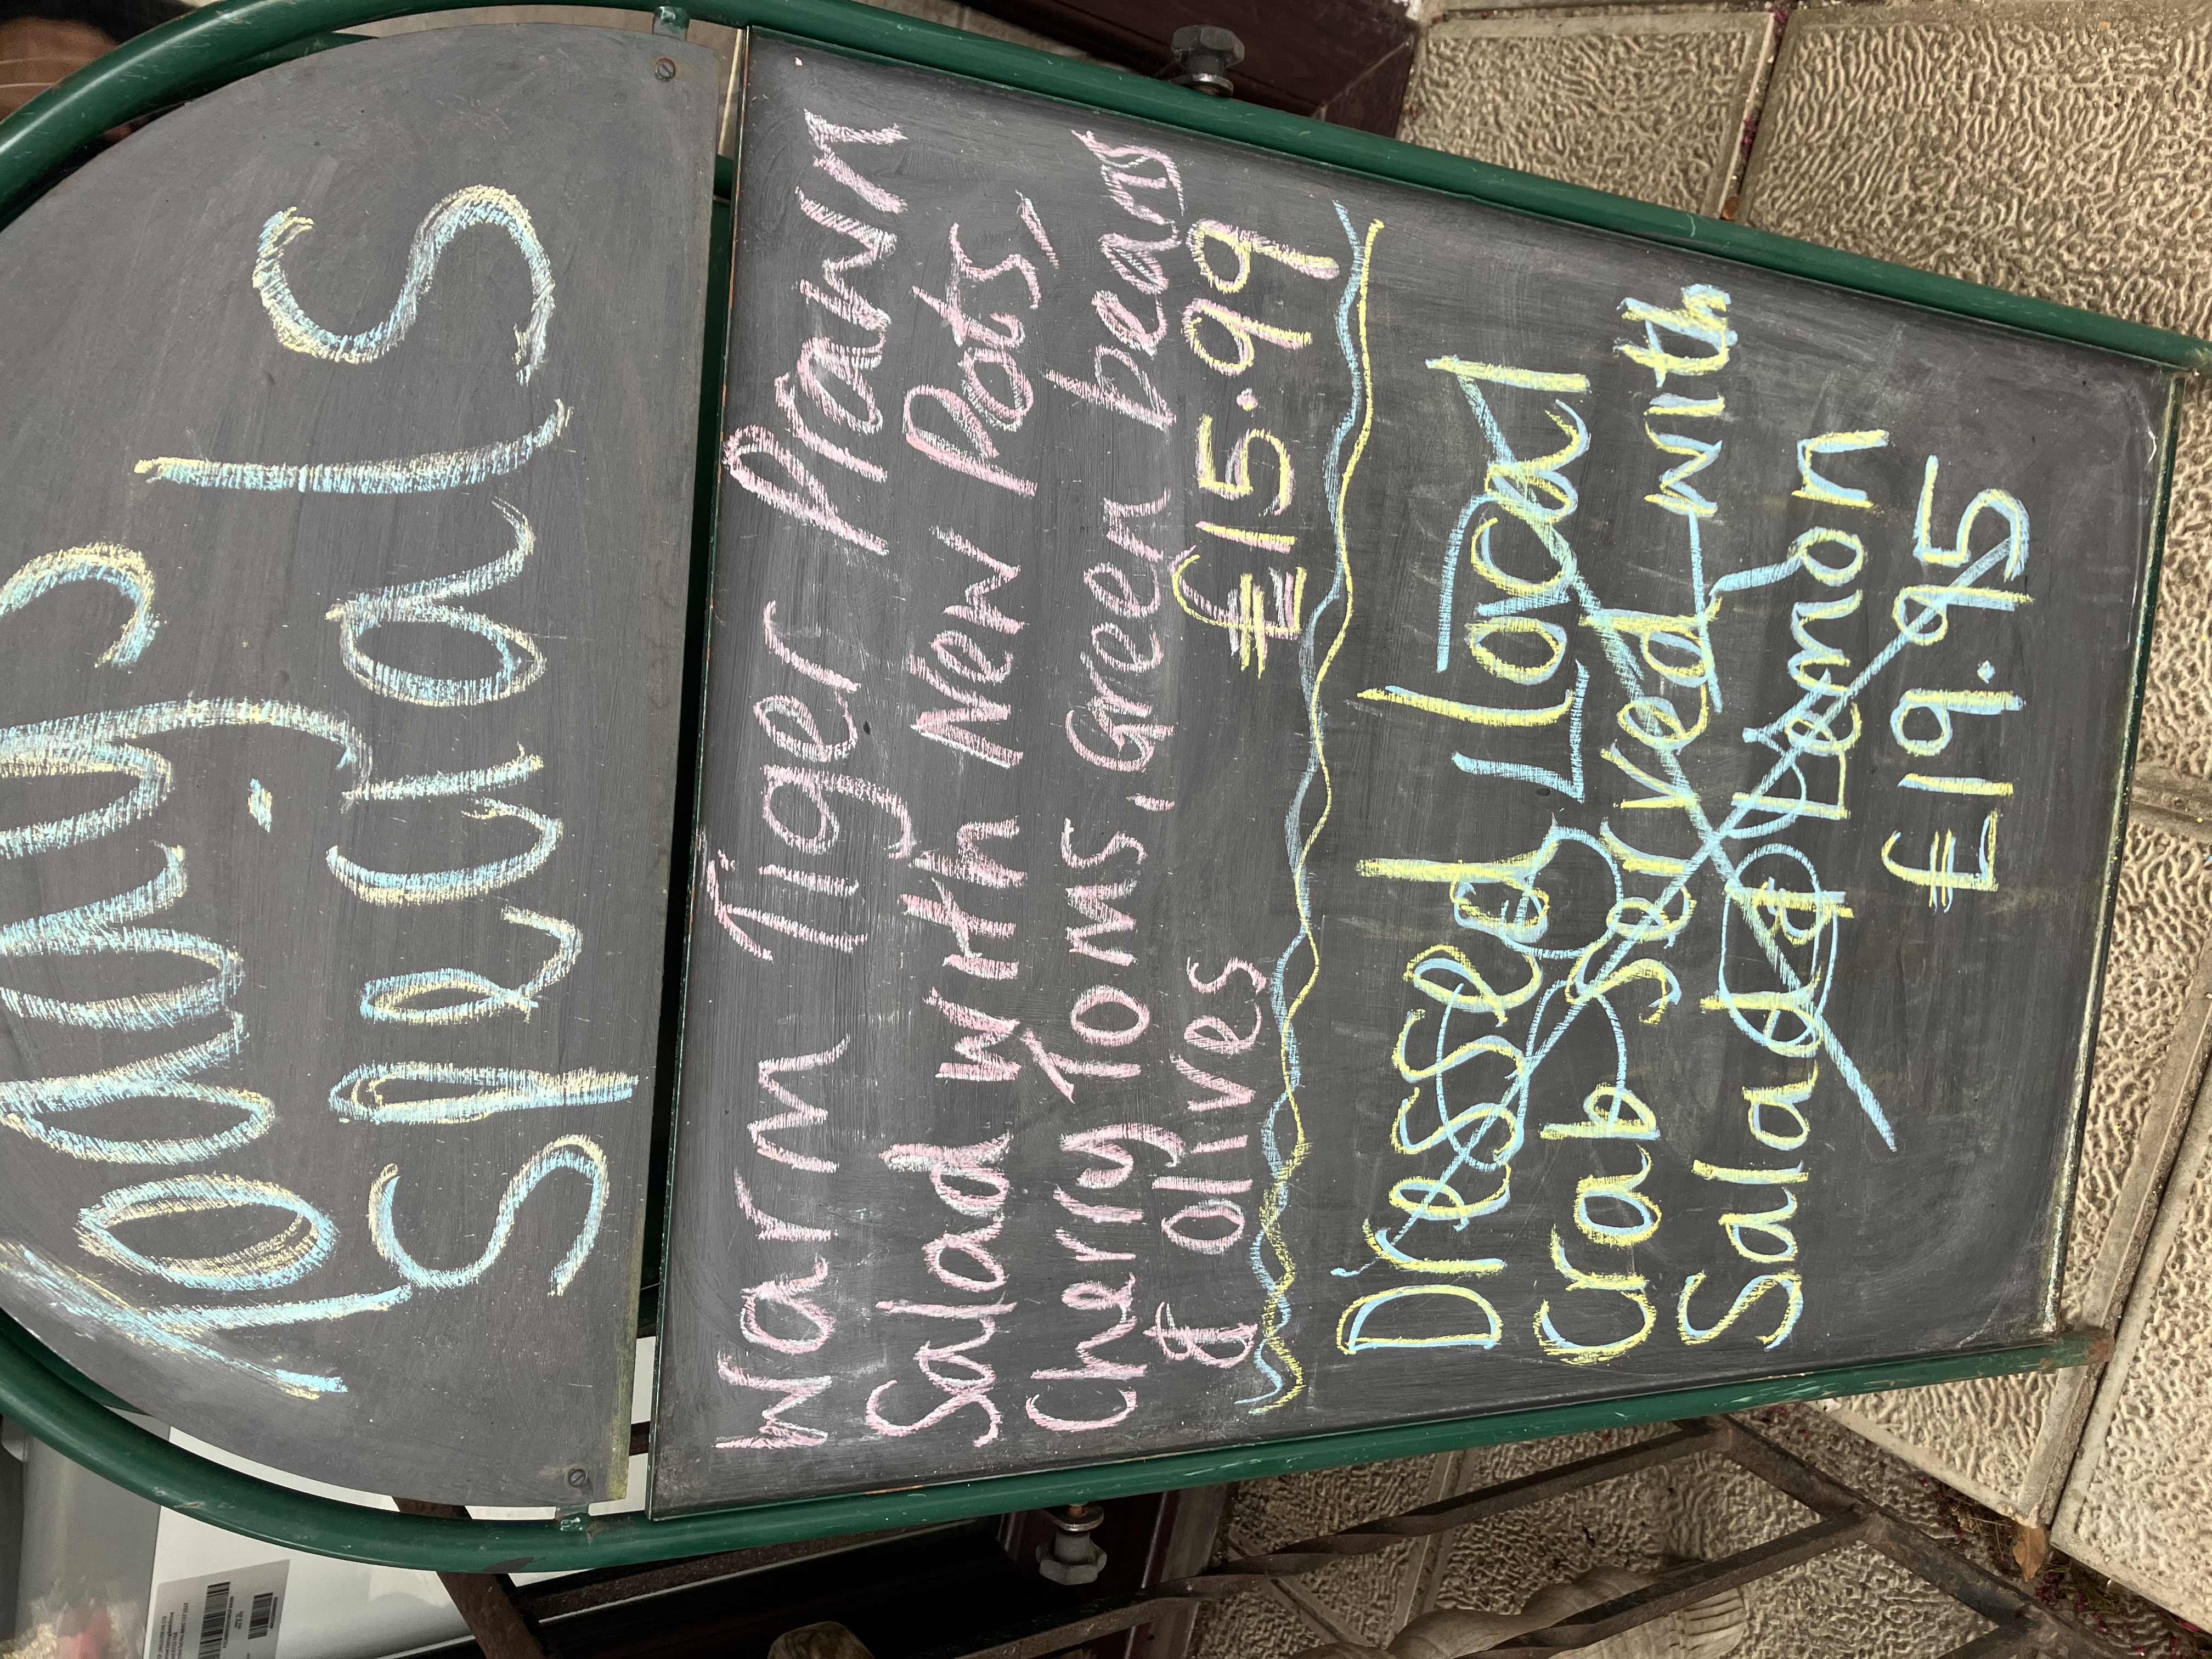 Today's
Specials
Warm Tiger Prawn
Salad with New Pots,
Cherry Toms, Green beans
& olives £15.99
Dressed Local
Crab Served with
Salad & Lemon
£19.95